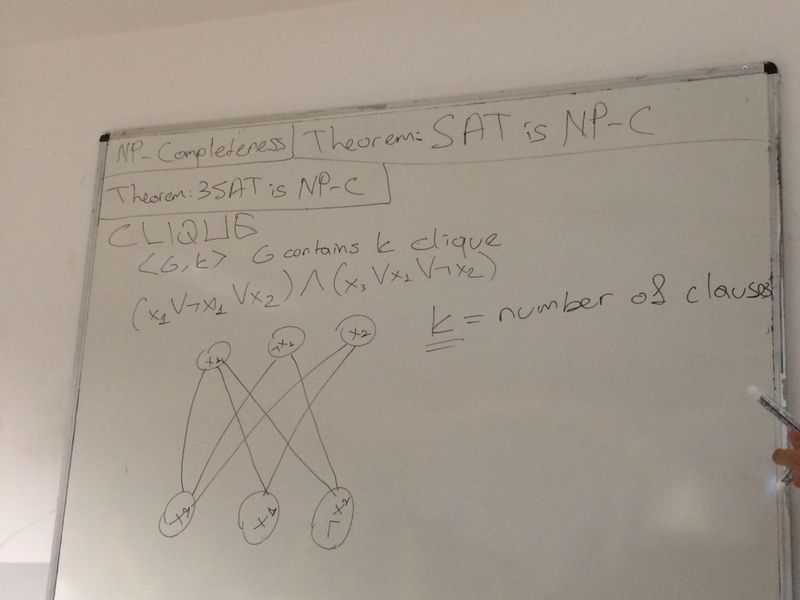 NP-Completeness Theorem: SAT is NP-C
Theorem: 3SAT is NP-C
CLIQUE
<G,k> G contains k clique
(x₁ ∨ ¬x₁ ∨ x₂) ∧ (x₃ ∨ x₁ ∨ ¬x₂)
k = number of clauses
x₁ ¬x₁ x₂
x₃ x₁ ¬x₂